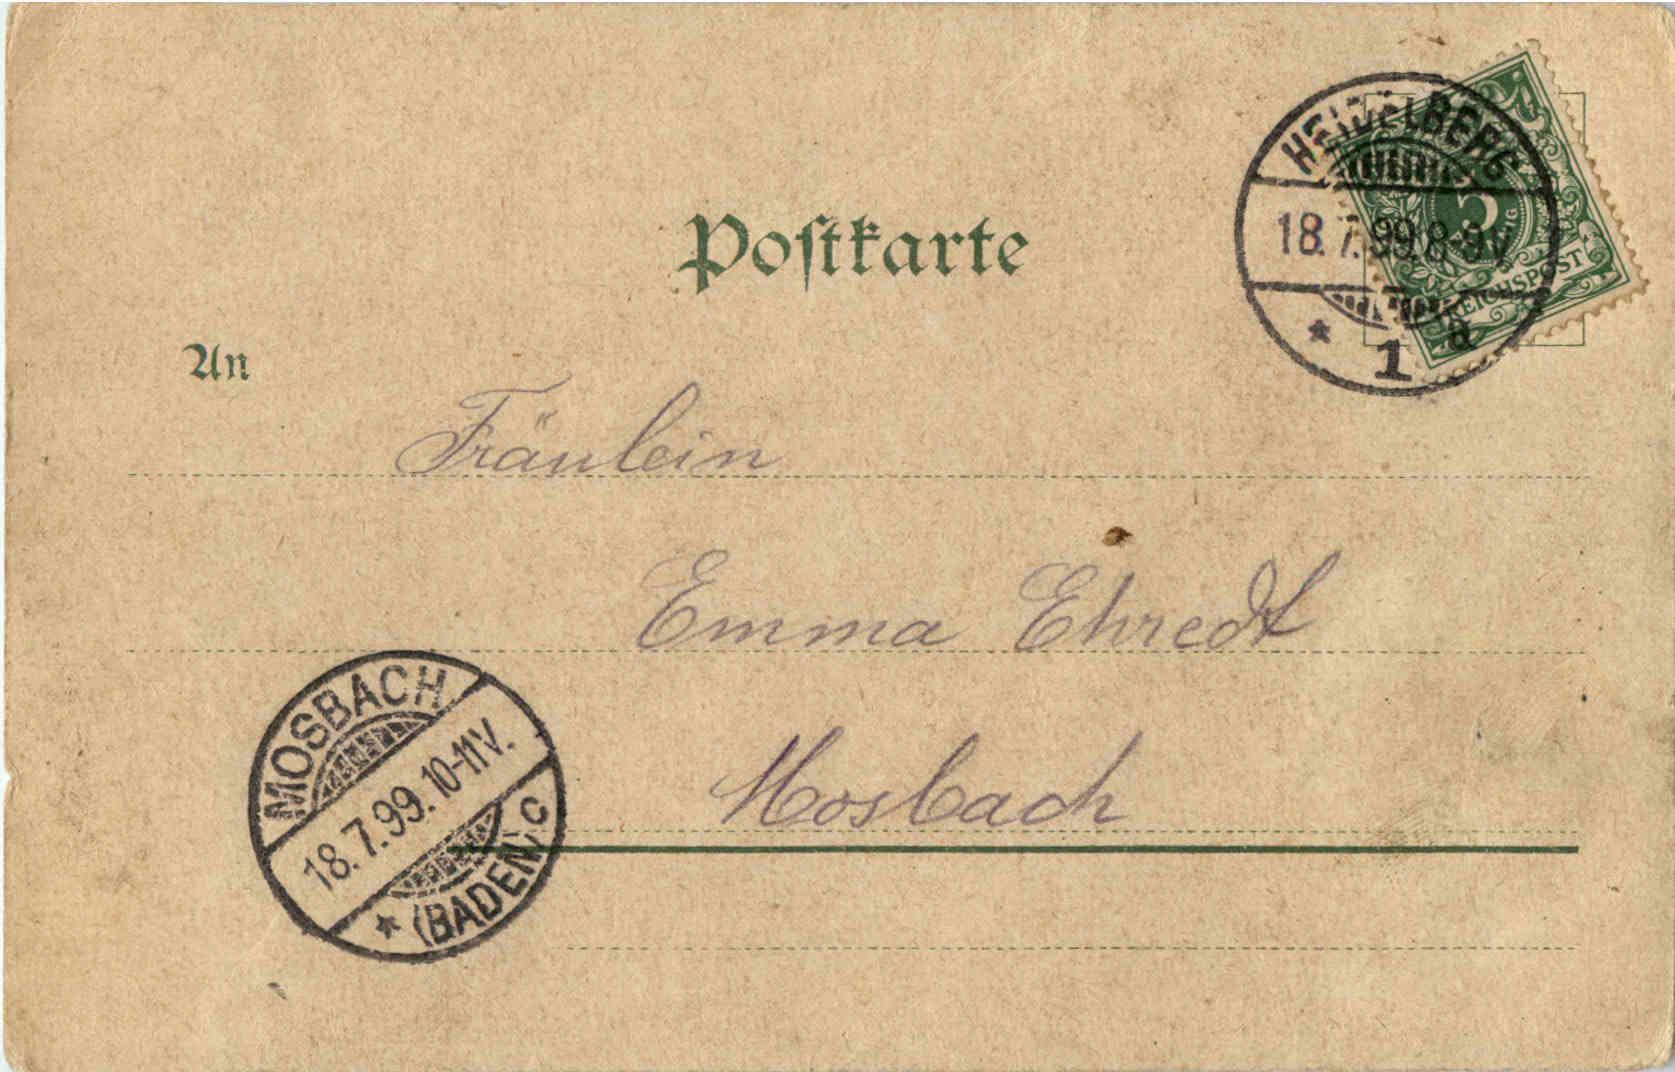 Postkarte
HEIDELBERG
18.7.99.8-9V.
* 1 a
5
REICHSPOST
An
Fräulein
Emma Ehredt
Mosbach
MOSBACH
18.7.99.10-11V.
* (BADEN) c